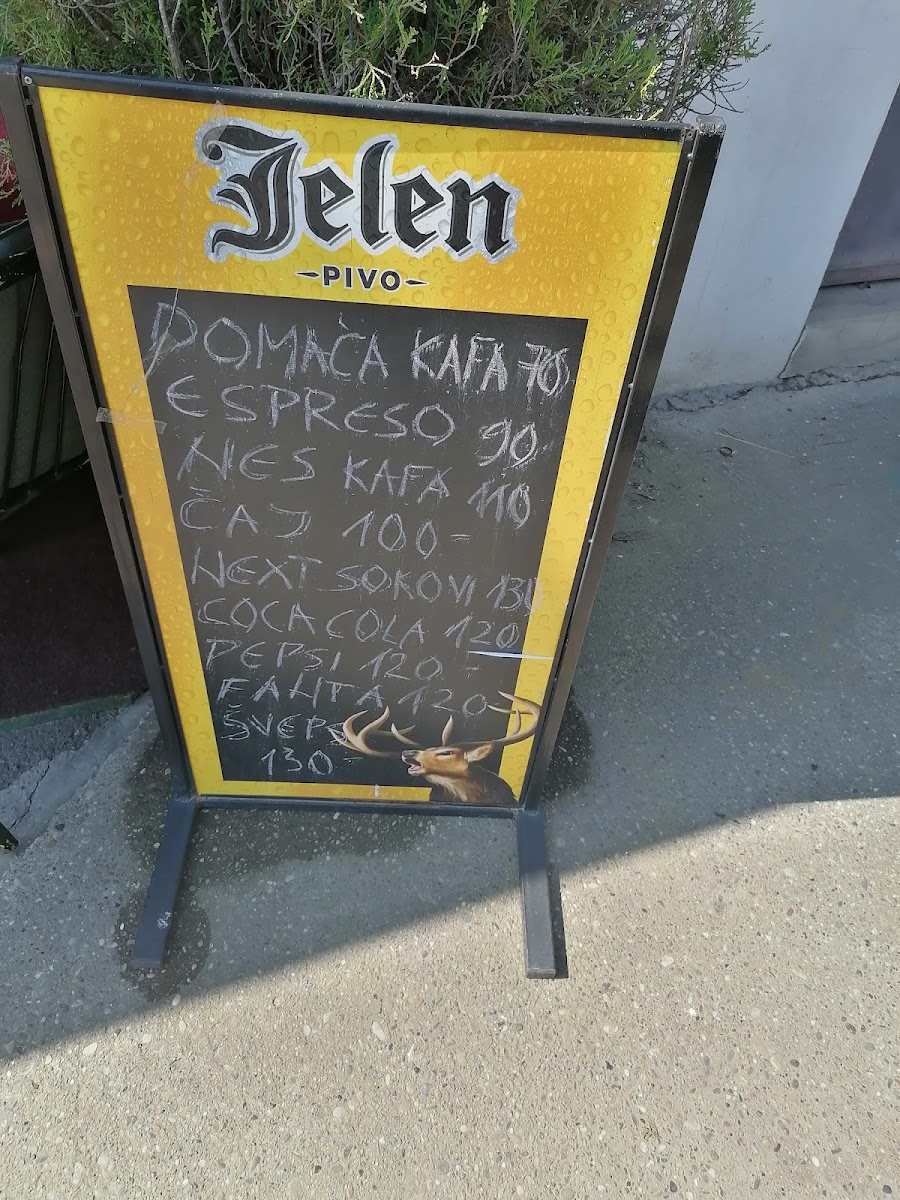 Jelen
PIVO
DOMAČA KAFA 70
ESPRESO 90
NES KAFA 110
ČAJ 100-
NEXT SOKOVI 130
COCA COLA 120
PEPSI 120-
FANTA 120-
ŠVEPS
130-